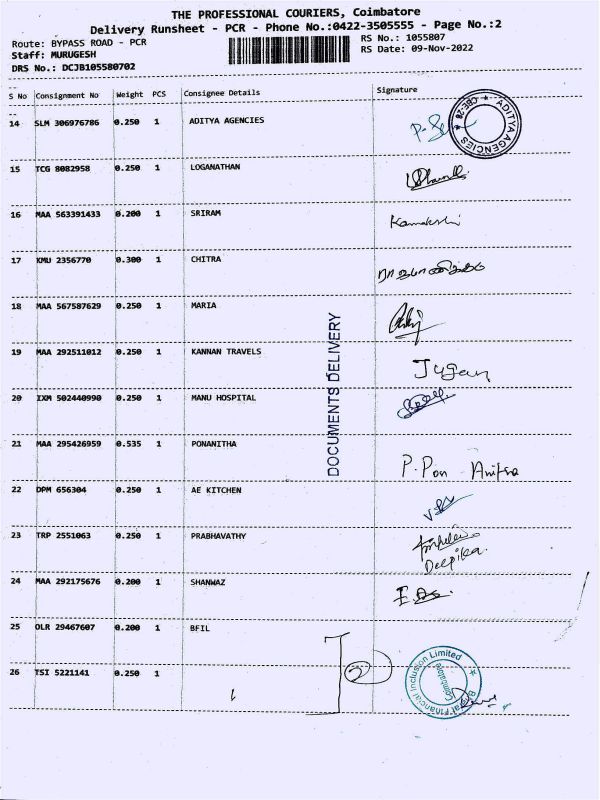 THE PROFESSIONAL COURIERS, Coimbatore
Delivery Runsheet - PCR - Phone No.:0422-3505555 - Page No.:2
Route: BYPASS ROAD - PCR
RS No.: 1055807
Staff: MURUGESH
RS Date: 09-Nov-2022
DRS No.: DCJB105580702
S No Consignment No Weight PCS Consignee Details Signature
14 SLM 306976786 0.250 1 ADITYA AGENCIES
ADITYA AGENCIES ★ CBE-28 ★
15 TCG 8082958 0.250 1 LOGANATHAN
16 MAA 563391433 0.200 1 SRIRAM
17 KMU 2356770 0.300 1 CHITRA
18 MAA 567587629 0.250 1 MARIA
19 MAA 292511012 0.250 1 KANNAN TRAVELS Jugan
20 IXM 502440990 0.250 1 MANU HOSPITAL
21 MAA 295426959 0.535 1 PONANITHA P. Pon Anitha
22 DPM 656304 0.250 1 AE KITCHEN
23 TRP 2551063 0.250 1 PRABHAVATHY
Deepika.
24 MAA 292175676 0.200 1 SHANWAZ
25 OLR 29467607 0.200 1 BFIL
26 TSI 5221141 0.250 1
2
Bharat Financial Inclusion Limited ★
Coimbatore
DOCUMENTS DELIVERY